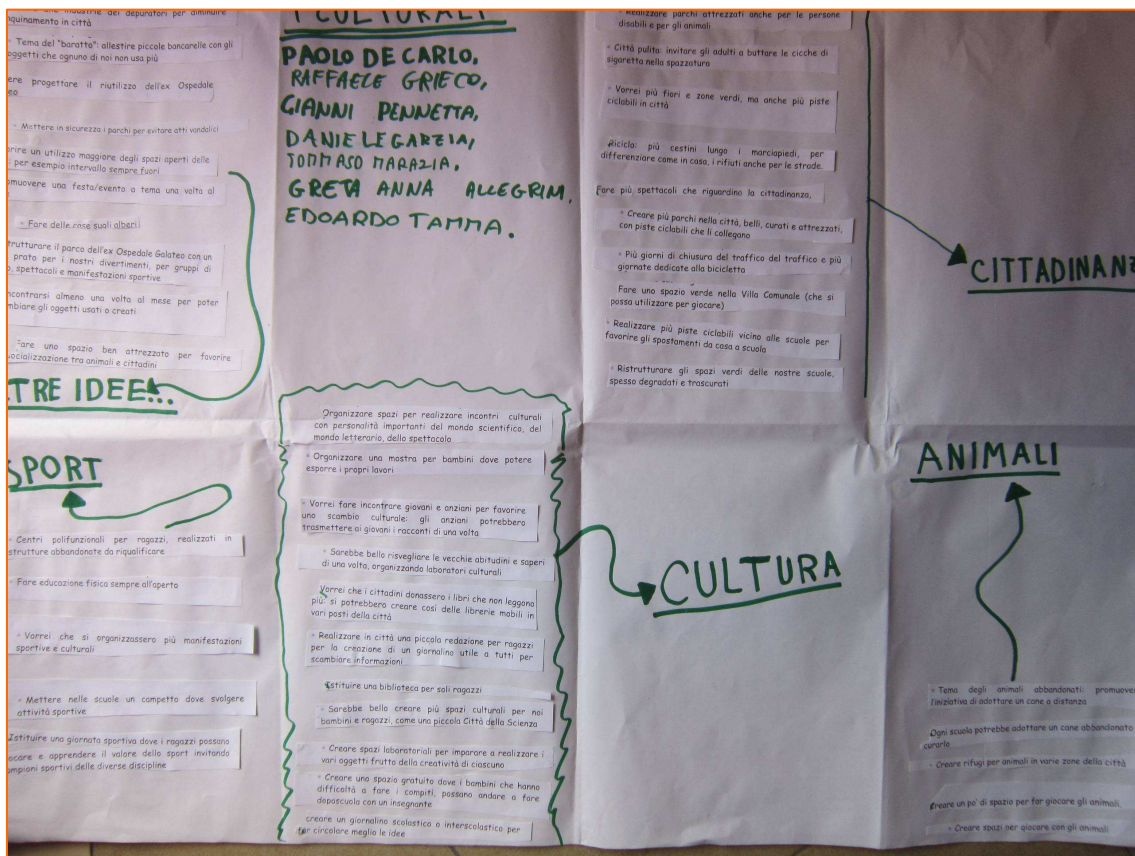 industrie dei depuratori per diminuire
inquinamento in città
* Tema del "baratto": allestire piccole bancarelle con gli
oggetti che ognuno di noi non usa più
progettare il riutilizzo dell'ex Ospedale
* Mettere in sicurezza i parchi per evitare atti vandalici
un utilizzo maggiore degli spazi aperti delle
per esempio intervallo sempre fuori
una festa/evento a tema una volta al
* Fare delle case sugli alberi
il parco dell'ex Ospedale Galateo con un
prato per i nostri divertimenti, per gruppi di
spettacoli e manifestazioni sportive
almeno una volta al mese per poter
gli oggetti usati o creati
Fare uno spazio ben attrezzato per favorire
socializzazione tra animali e cittadini
TRE IDEE...
SPORT
* Centri polifunzionali per ragazzi, realizzati in
strutture abbandonate da riqualificare
* Fare educazione fisica sempre all'aperto
* Vorrei che si organizzassero più manifestazioni
sportive e culturali
* Mettere nelle scuole un campetto dove svolgere
attività sportive
Istituire una giornata sportiva dove i ragazzi possano
giocare e apprendere il valore dello sport invitando
campioni sportivi delle diverse discipline
I CULTURALI
PAOLO DE CARLO,
RAFFAELE GRIECO,
GIANNI PENNETTA,
DANIELE GARZIA,
TOMMASO MARAZIA,
GRETA ANNA ALLEGRIM,
EDOARDO TAMMA.
Organizzare spazi per realizzare incontri culturali
con personalità importanti del mondo scientifico, del
mondo letterario, dello spettacolo
* Organizzare una mostra per bambini dove potere
esporre i propri lavori
* Vorrei fare incontrare giovani e anziani per favorire
uno scambio culturale: gli anziani potrebbero
trasmettere ai giovani i racconti di una volta
* Sarebbe bello risvegliare le vecchie abitudini e saperi
di una volta, organizzando laboratori culturali
Vorrei che i cittadini donassero i libri che non leggono
più: si potrebbero creare così delle librerie mobili in
vari posti della città
* Realizzare in città una piccola redazione per ragazzi
per la creazione di un giornalino utile a tutti per
scambiare informazioni
Istituire una biblioteca per soli ragazzi
* Sarebbe bello creare più spazi culturali per noi
bambini e ragazzi, come una piccola Città della Scienza
* Creare spazi laboratoriali per imparare a realizzare i
vari oggetti frutto della creatività di ciascuno
* Creare uno spazio gratuito dove i bambini che hanno
difficoltà a fare i compiti, possano andare a fare
doposcuola con un insegnante
creare un giornalino scolastico o interscolastico per
far circolare meglio le idee
* Realizzare parchi attrezzati anche per le persone
disabili e per gli animali
* Città pulita: invitare gli adulti a buttare le cicche di
sigaretta nella spazzatura
* Vorrei più fiori e zone verdi, ma anche più piste
ciclabili in città
Riciclo: più cestini lungo i marciapiedi, per
differenziare come in casa, i rifiuti anche per le strade.
Fare più spettacoli che riguardino la cittadinanza,
* Creare più parchi nella città, belli, curati e attrezzati,
con piste ciclabili che li collegano
* Più giorni di chiusura del traffico del traffico e più
giornate dedicate alla bicicletta
Fare uno spazio verde nella Villa Comunale (che si
possa utilizzare per giocare)
* Realizzare più piste ciclabili vicino alle scuole per
favorire gli spostamenti da casa a scuola
* Ristrutturare gli spazi verdi delle nostre scuole,
spesso degradati e trascurati
CITTADINANZ
CULTURA
ANIMALI
* Tema degli animali abbandonati: promuovere
l'iniziativa di adottare un cane a distanza
Ogni scuola potrebbe adottare un cane abbandonato
curarlo
* Creare rifugi per animali in varie zone della città
Creare un po' di spazio per far giocare gli animali.
* Creare spazi per giocare con gli animali